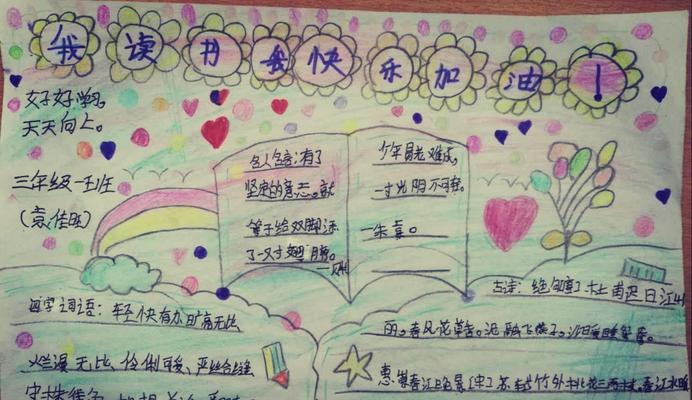 我读书我快乐加油！
好好学习
天天向上。
三年级一班
（袁佳旺）
名人名言：有了
坚定的意志。就
等于给双脚添
了一又寸翅月旁。
少年易老难成，
一寸光阴不可轻。
一朱熹。
四字词语：轻快有力 旷亮无比
烂漫无比、伶俐可爱、严丝合缝
古诗：绝句 杜甫 迟日江山
丽。春风花草香。泥融飞燕子。沙暖睡鸳鸯。
惠崇春江晚景 苏轼 竹外桃花三两枝。春江水暖